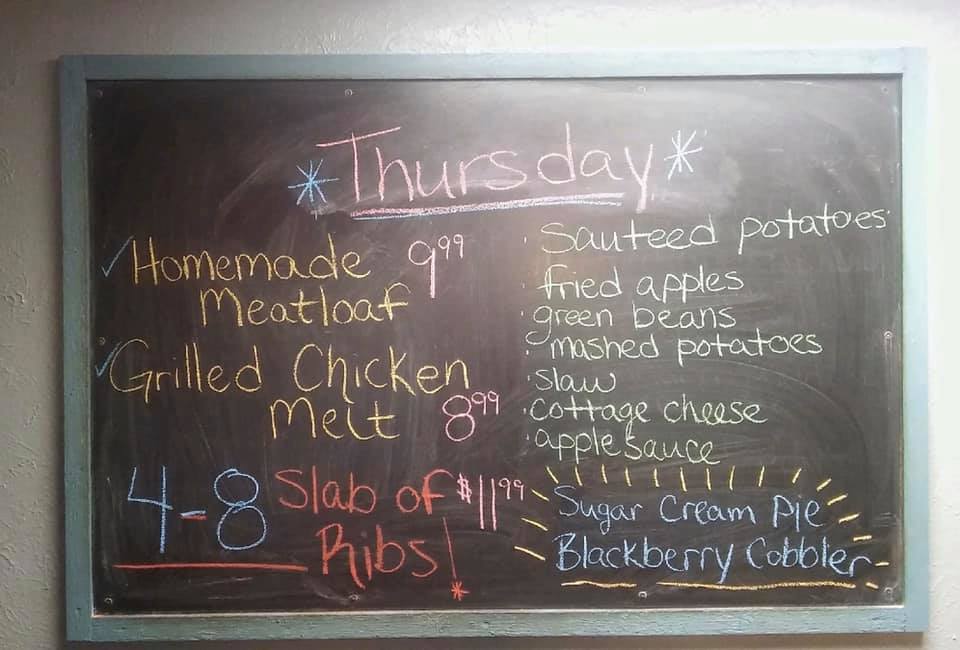 *Thursday*
✓Homemade 9⁹⁹
Meatloaf
✓Grilled Chicken
Melt 8⁹⁹
4-8 Slab of $11⁹⁹
Ribs!
· Sauteed potatoes
· fried apples
· green beans
· mashed potatoes
· slaw
· cottage cheese
· apple sauce
Sugar Cream Pie
Blackberry Cobbler